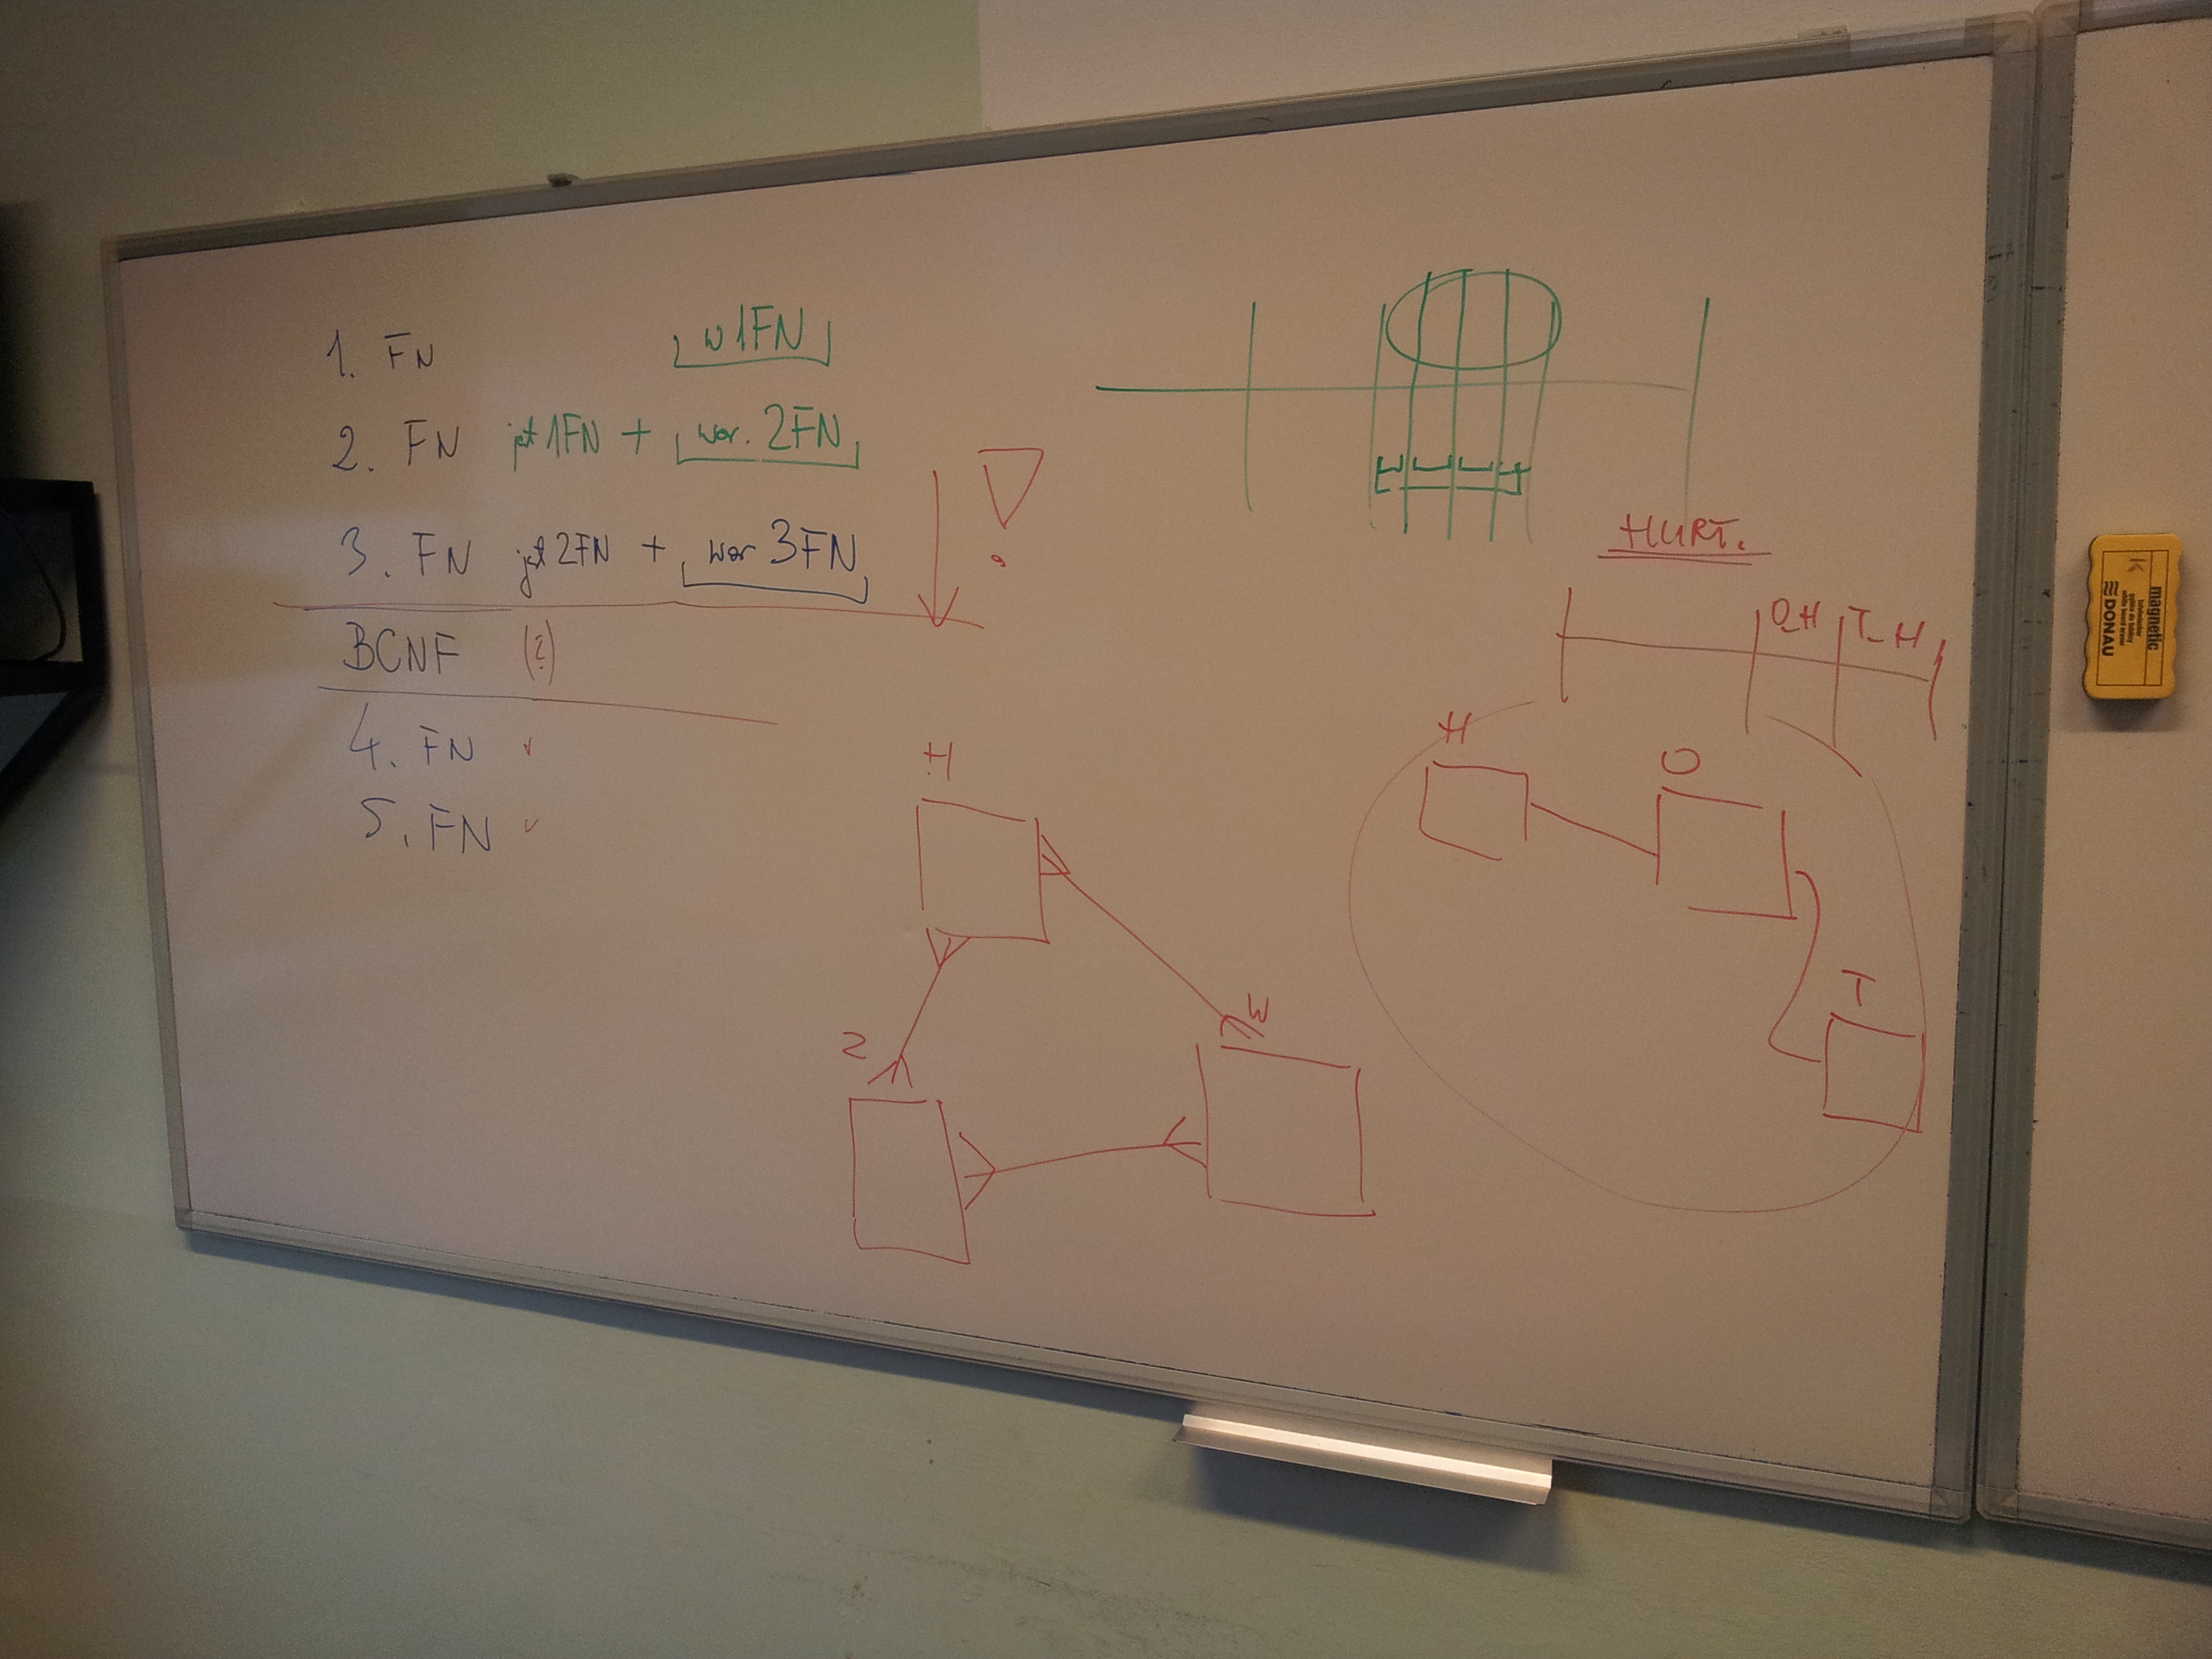 1. FN w 1FN
2. FN jest 1FN + war. 2FN
3. FN jest 2FN + war 3FN
!
BCNF (?)
4. FN ✓
5. FN ✓
HURT.
O_H T_H
H
O
T
H
Z
W
magnetic
DONAU